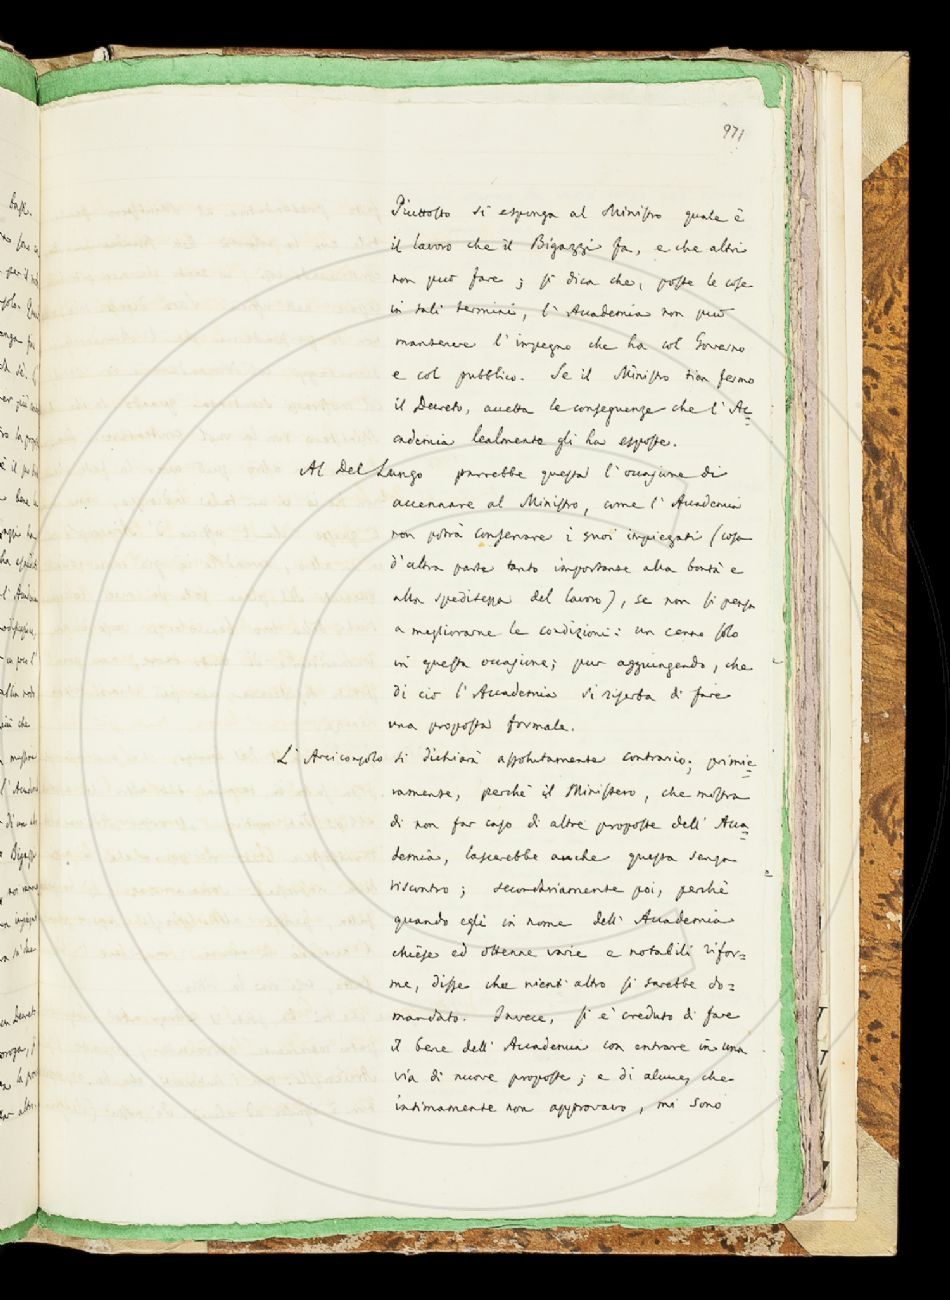 971
Piuttosto si esponga al Ministro quale è
il lavoro che il Bigazzi fa, e che altri
non può fare; si dica che, poste le cose
in tali termini, l'Accademia non può
mantenere l'impegno che ha col Governo
e col pubblico. Se il Ministro tien fermo
il Decreto, accetta le conseguenze che l'Ac=
cademia lealmente gli ha esposte.
Al Del Lungo parrebbe questa l'occasione di
accennare al Ministro, come l'Accademia
non potrà conservare i suoi impiegati (cosa
d'altra parte tanto importante alla bontà e
alla speditezza del lavoro), se non si pensa
a migliorarne le condizioni: un cenno solo
in questa occasione; pur aggiungendo, che
di ciò l'Accademia si riserba di fare
una proposta formale.
L'Arciconsolo si dichiara assolutamente contrario; primie=
ramente, perchè il Ministero, che mostra
di non far caso di altre proposte dell'Acca=
demia, lascerebbe anche questa senza
riscontro; secondariamente poi, perchè
quando egli in nome dell'Accademia
chiese ed ottenne varie e notabili rifor=
me, disse che nient'altro si sarebbe do=
mandato. Invece, si è creduto di fare
il bene dell'Accademia con entrare in una
via di nuove proposte; e di alcune, che
intimamente non approvavo, mi sono